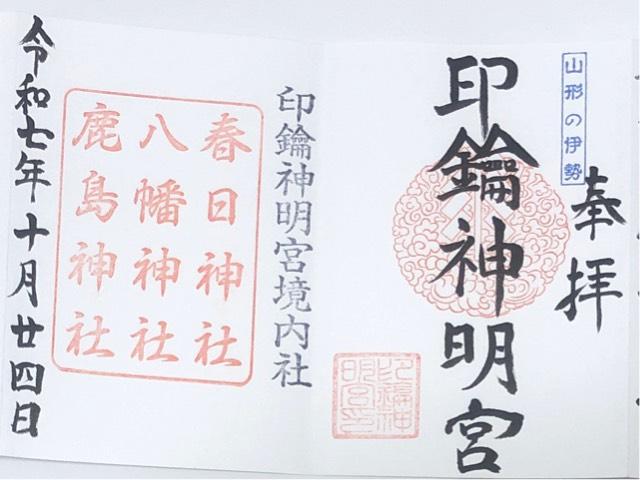 山形の伊勢
奉拝
印鑰神明宮
印鑰神明宮境内社
春日神社
八幡神社
鹿島神社
令和七年十月廿四日